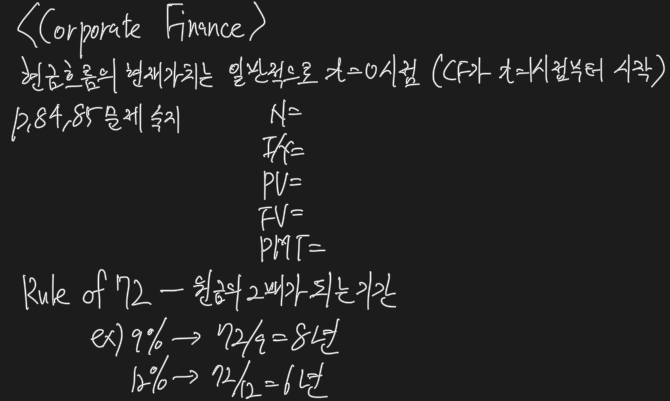 <Corporate Finance>
현금흐름의 현재가치는 일반적으로 t=0시점 (CF가 t=1시점부터 시작)
p.84,85 문제 숙지
N=
I/Y=
PV=
FV=
PMT=
Rule of 72 — 원금의 2배가 되는 기간
ex) 9% → 72/9=8년
12% → 72/12=6년